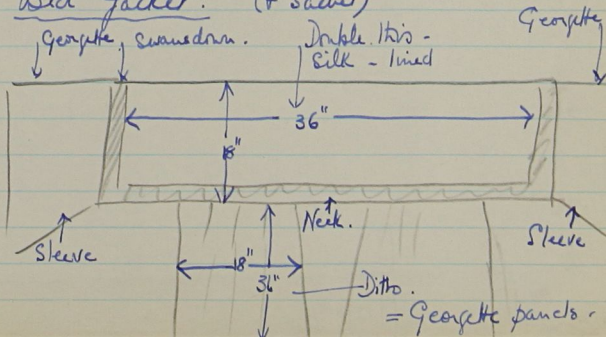 Bed Jacket. (& Sachet)
Georgette
Georgette, Swansdown.
Double this -
Silk - lined
36"
18"
Neck.
Sleeve
Sleeve
18"
36"
Ditto.
= Georgette panels.